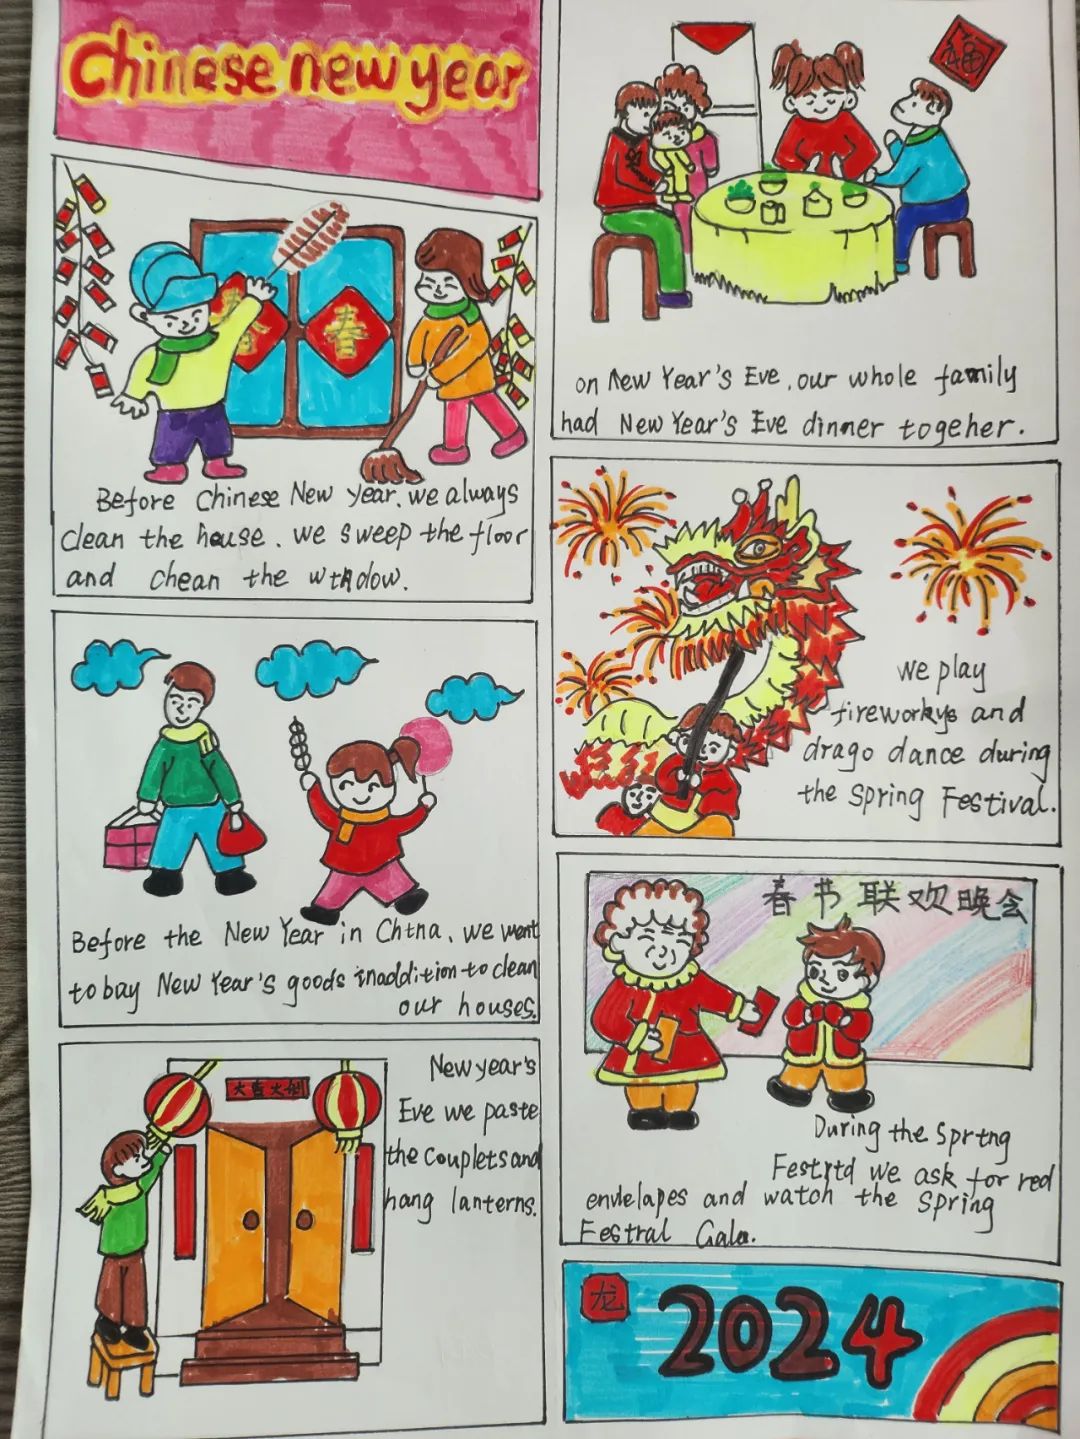 Chinese new year
春 春
Before Chinese New Year, we always
clean the house. we sweep the floor
and chean the wtndow.
Before the New Year in Chtna, we went
to bay New Year's goods inaddition to clean
our houses.
大吉大利
New year's
Eve we paste
the couplets and
hang lanterns.
福
on New Year's Eve, our whole family
had New Year's Eve dinner togeher.
we play
fireworkys and
drago dance during
the Spring Festival.
春节联欢晚会
During the Sprtng
Festrtd we ask for red
envlelapes and watch the Spring
Festral Gala.
龙
2024